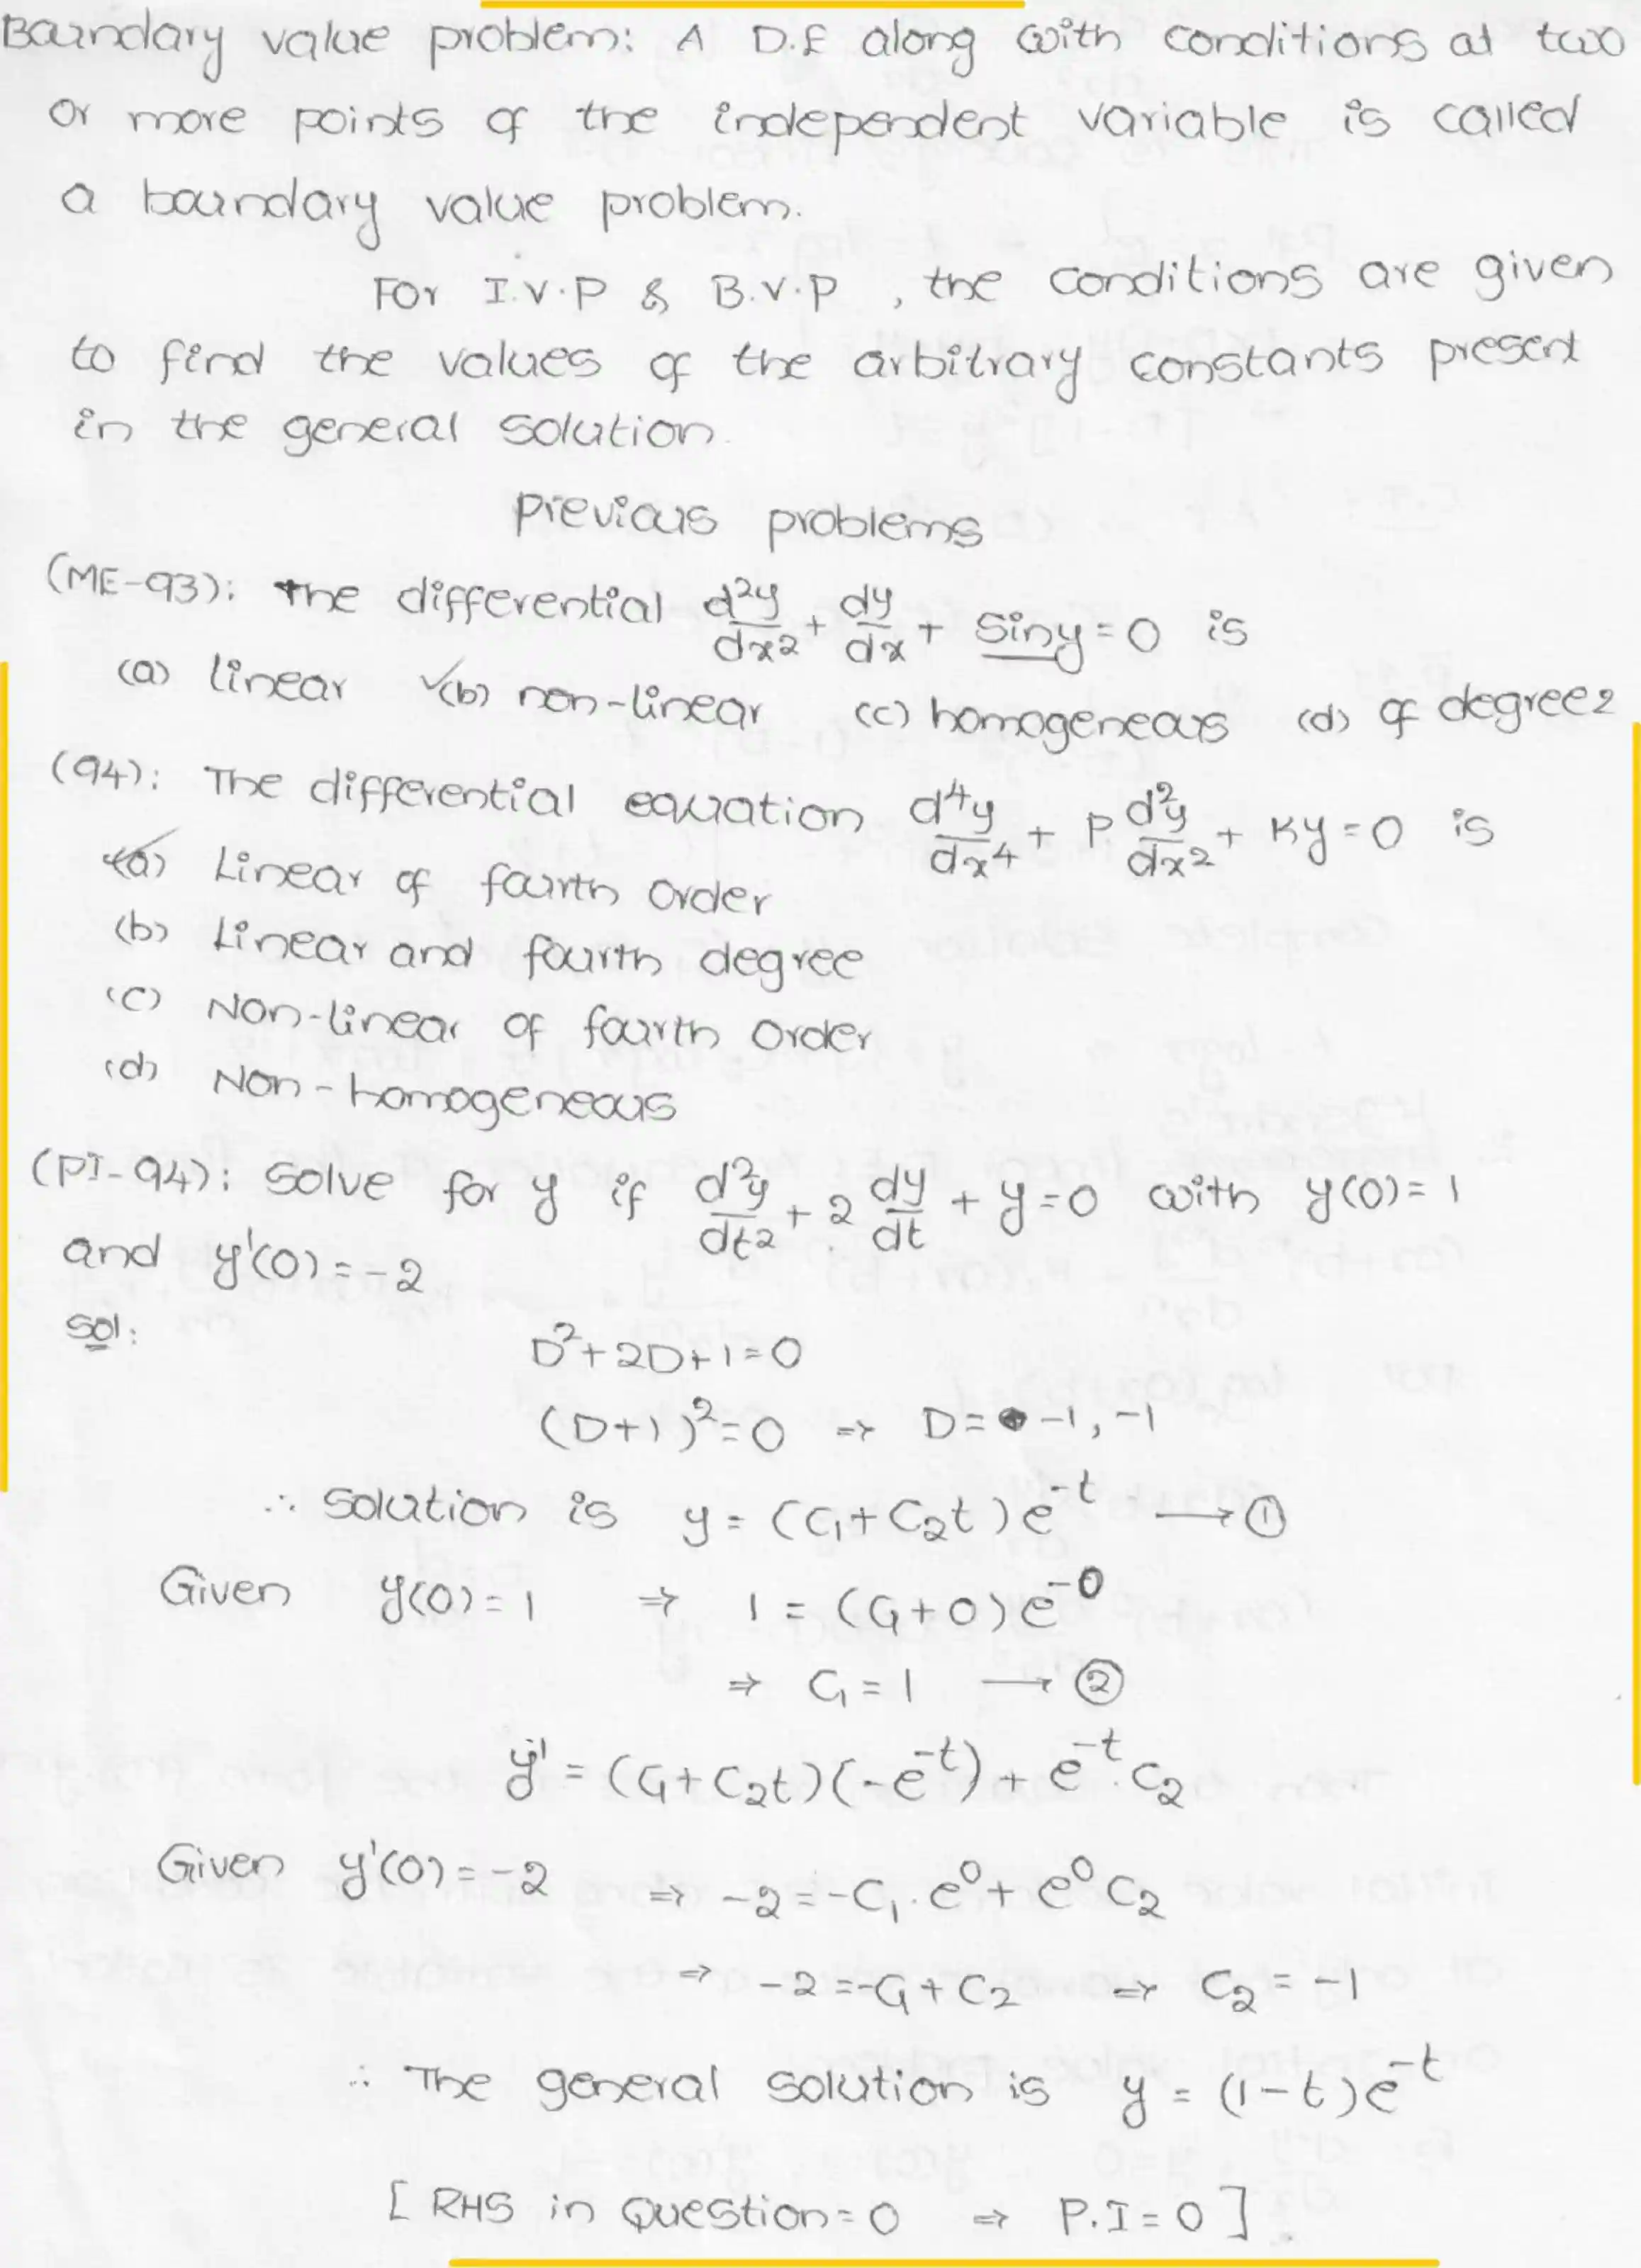 Boundary value problem: A D.E along with conditions at two
or more points of the independent variable is called
a boundary value problem.
For I.V.P & B.V.P , the conditions are given
to find the values of the arbitrary constants present
in the general solution.
Previous problems
(ME-93): The differential d²y/dx² + dy/dx + Siny = 0 is
(a) linear ✓(b) non-linear (c) homogeneous (d) of degree 2
(94): The differential equation d⁴y/dx⁴ + P. d²y/dx² + Ky = 0 is
✓(a) Linear of fourth order
(b) Linear and fourth degree
(c) Non-linear of fourth order
(d) Non-homogeneous
(PI-94): Solve for y if d²y/dt² + 2 dy/dt + y = 0 with y(0) = 1
and y'(0) = -2
Sol:
D² + 2D + 1 = 0
(D+1)² = 0 ⇒ D = -1, -1
∴ Solution is y = (C₁ + C₂t) e^-t → ①
Given y(0) = 1 ⇒ 1 = (C₁ + 0) e^-0
⇒ C₁ = 1 → ②
y' = (C₁ + C₂t)(-e^-t) + e^-t. C₂
Given y'(0) = -2 ⇒ -2 = -C₁. e⁰ + e⁰ C₂
⇒ -2 = -C₁ + C₂ ⇒ C₂ = -1
∴ The general solution is y = (1-t) e^-t
[ RHS in Question = 0 ⇒ P.I = 0 ].